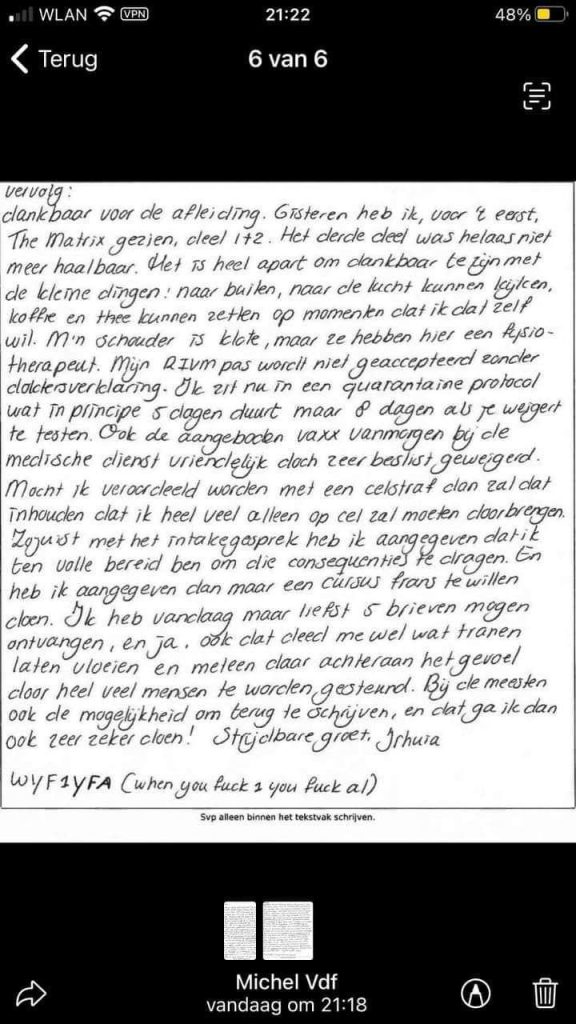 WLAN VPN 21:22 48%
Terug 6 van 6
vervolg:
dankbaar voor de afleiding. Gisteren heb ik, voor 't eerst,
The Matrix gezien, deel 1+2. Het derde deel was helaas niet
meer haalbaar. Het is heel apart om dankbaar te zijn met
de kleine dingen: naar buiten, naar de lucht kunnen kijken,
koffie en thee kunnen zetten op momenten dat ik dat zelf
wil. M'n schouder is klote, maar ze hebben hier een fysio-
therapeut. Mijn RIVM pas wordt niet geaccepteerd zonder
doktersverklaring. Ik zit nu in een quarantaine protocol
wat in principe 5 dagen duurt maar 8 dagen als je weigert
te testen. Ook de aangeboden vaxx vanmorgen bij de
medische dienst vriendelijk doch zeer beslist geweigerd.
Mocht ik veroordeeld worden met een celstraf dan zal dat
inhouden dat ik heel veel alleen op cel zal moeten doorbrengen.
Zojuist met het intakegesprek heb ik aangegeven dat ik
ten volle bereid ben om die consequenties te dragen. En
heb ik aangegeven dan maar een cursus frans te willen
doen. Ik heb vandaag maar liefst 5 brieven mogen
ontvangen, en ja, ook dat deed me wel wat tranen
laten vloeien en meteen daar achteraan het gevoel
door heel veel mensen te worden gesteund. Bij de meesten
ook de mogelijkheid om terug te schrijven, en dat ga ik dan
ook zeer zeker doen! Strijdbare groet, Ishuia
WYF1YFA (when you fuck 1 you fuck al)
Svp alleen binnen het tekstvak schrijven.
Michel Vdf
vandaag om 21:18